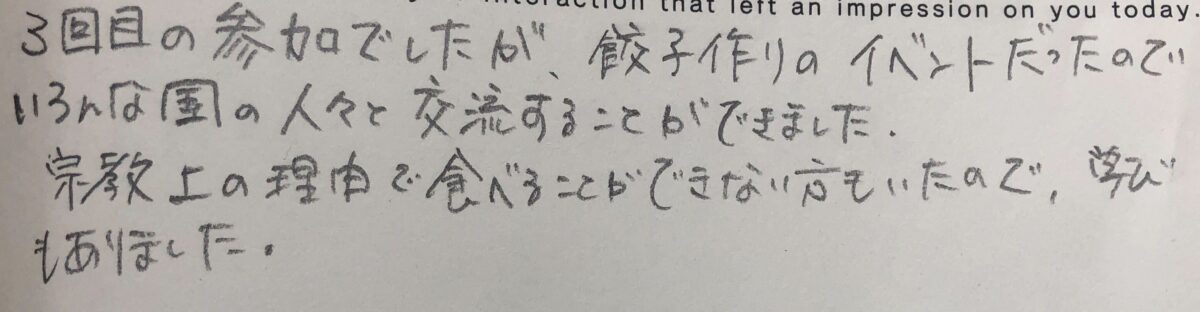 interaction that left an impression on you today.
3回目の参加でしたが、餃子作りのイベントだったので
いろんな国の人々と交流することができました.
宗教上の理由で食べることができない方もいたので,学び
もありました.